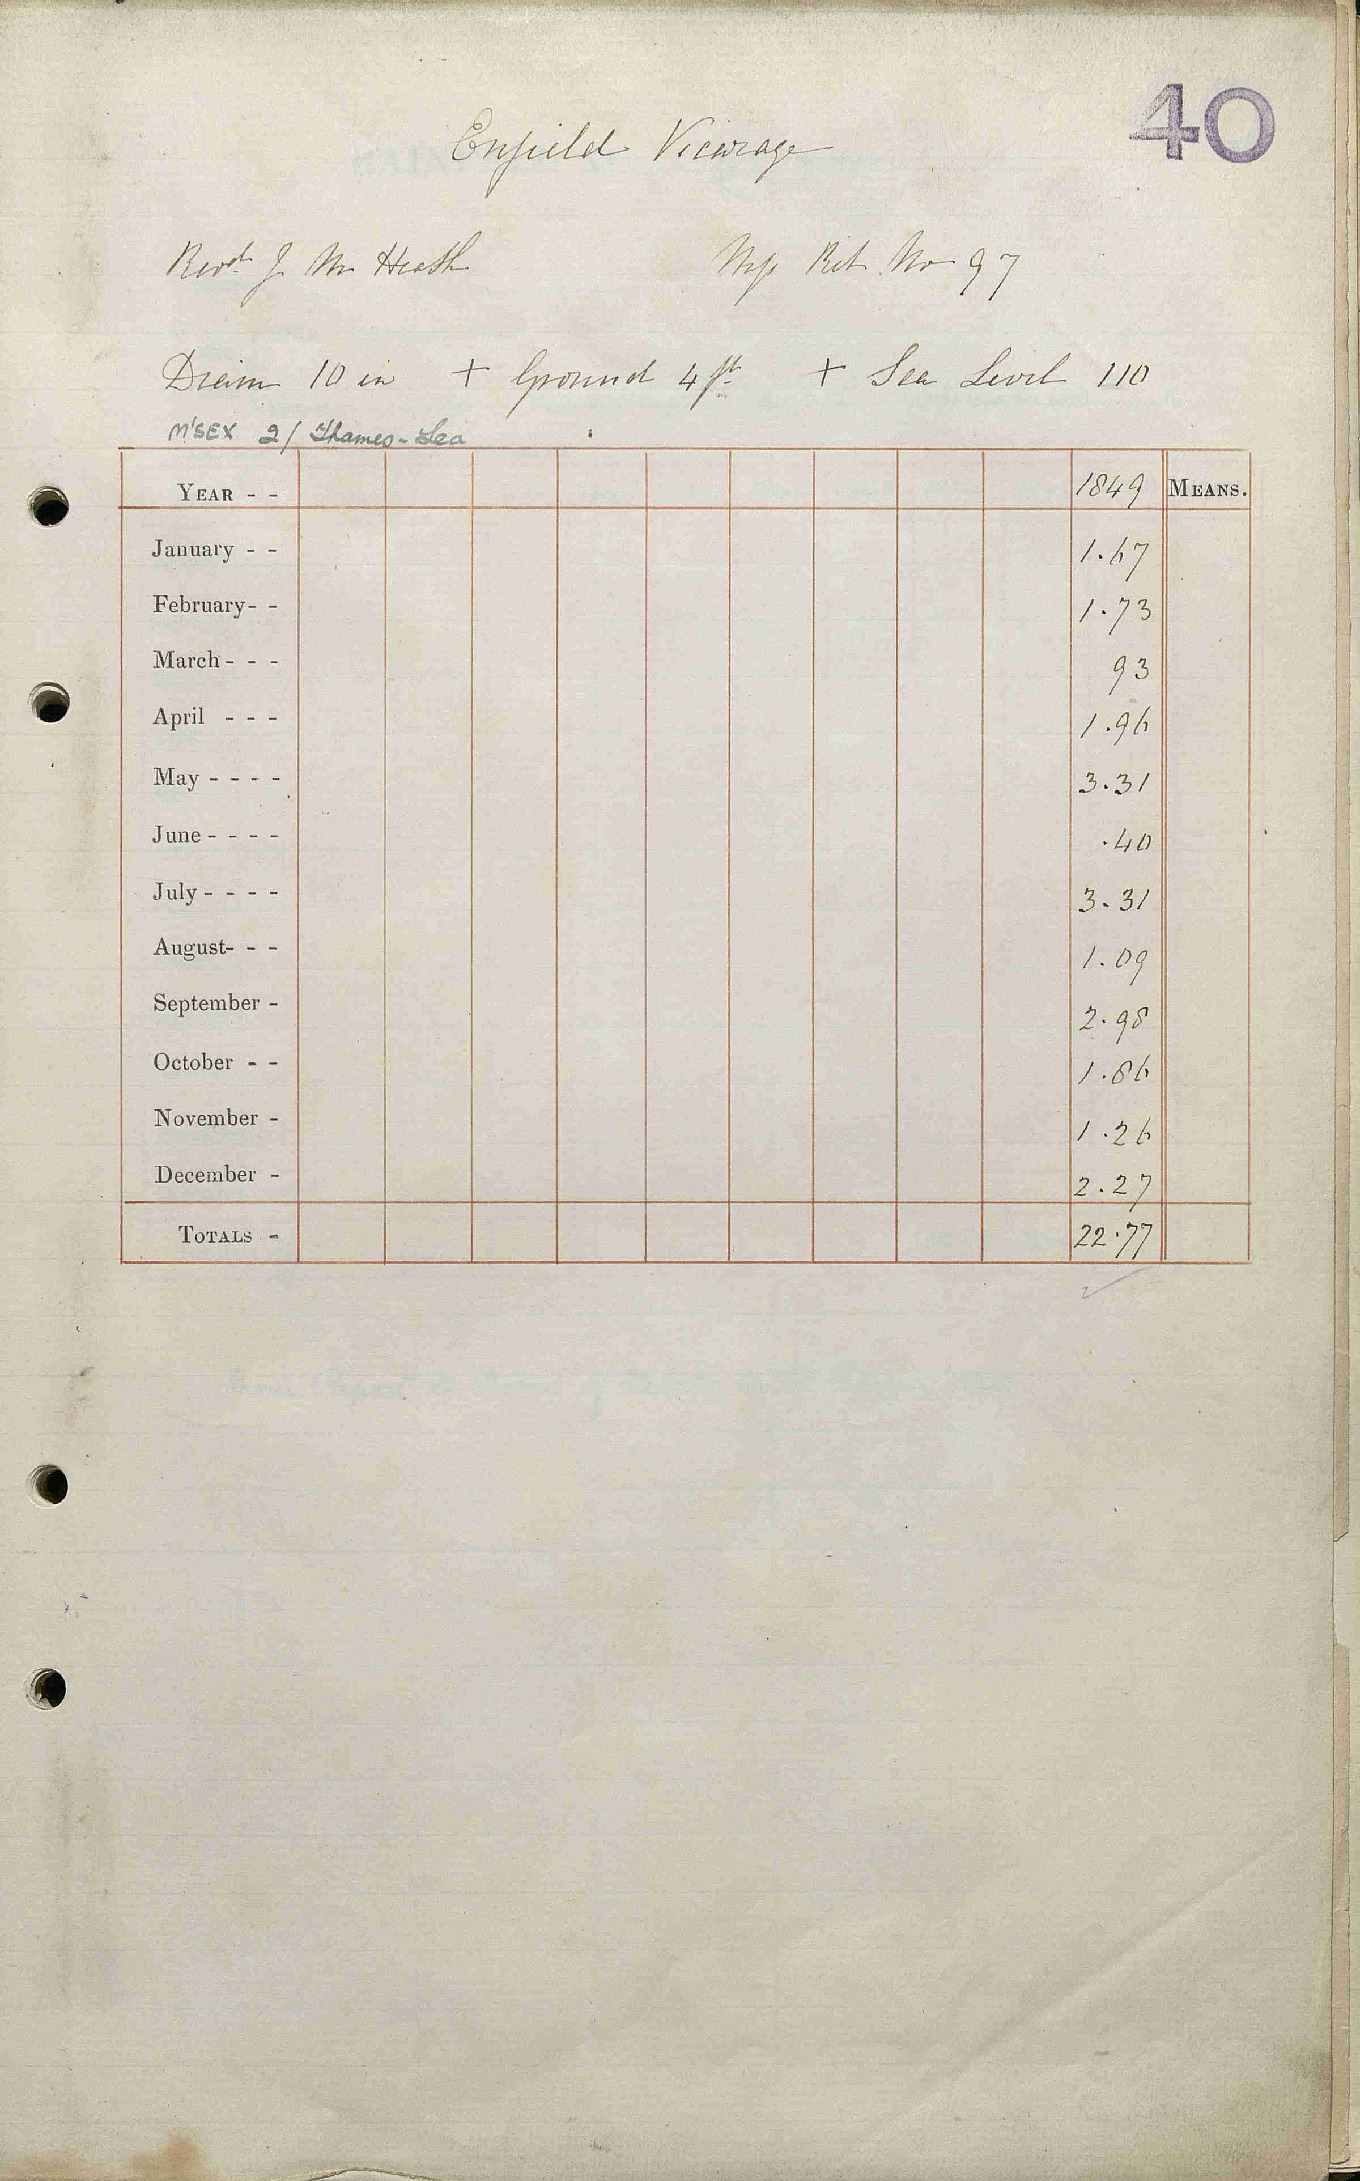 40
Enfield Vicarage
Revd. J M Heath Ret No 97
Diam 10 in + Ground 4 ft + Sea Level 110
M'SEX 2/ Thames-Lea
YEAR - - 1849 MEANS.
January - - 1.67
February- - 1.73
March - - - 93
April - - - 1.96
May - - - - 3.31
June - - - - .40
July - - - - 3.31
August- - - 1.09
September - 2.98
October - - 1.86
November - 1.26
December - 2.27
TOTALS - 22.77